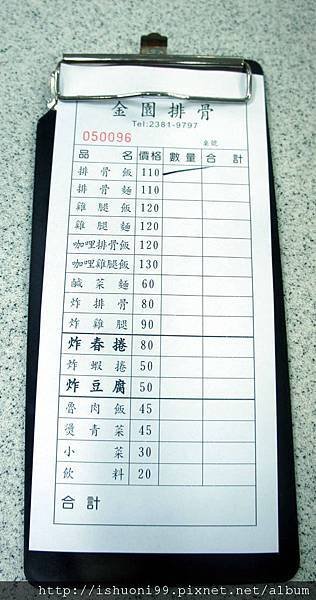 金園排骨
Tel:2381-9797
050096 桌號
品名 價格 數量 合計
排骨飯 110
排骨麵 110
雞腿飯 120
雞腿麵 120
咖哩排骨飯 120
咖哩雞腿飯 130
鹹菜麵 60
炸排骨 80
炸雞腿 90
炸春捲 80
炸蝦捲 50
炸豆腐 50
魯肉飯 45
燙青菜 45
小菜 30
飲料 20
合計
http://ishuoni99.pixnet.net/album